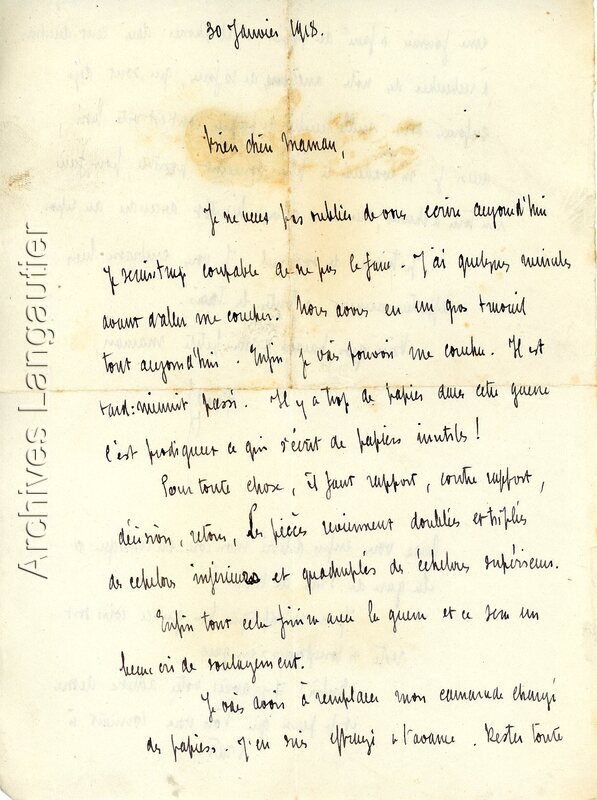 30 Janvier 1918.
Bien chère Maman,
Je ne veux pas oublier de vous écrire aujourd'hui
Je serais trop coupable de ne pas le faire. J'ai quelques minutes
avant d'aller me coucher. Nous avons eu un gros travail
tout aujourd'hui. Enfin je vais pouvoir me coucher. Il est
tard: minuit passé. Il y a trop de papiers dans cette guerre
c'est prodigieux ce qui s'écrit de papiers inutiles!
Pour toute chose, il faut rapport, contre rapport,
décision, retour, les pièces reviennent doublées et triplées
des echelons inférieurs et quadruples des echelons supérieurs.
Enfin tout cela finira avec la guerre et ce sera un
beau cri de soulagement.
Je vais avoir à remplacer mon camarade chargé
des papiers. J'en suis effrayé à l'avance. Rester toute
Archives Langautier